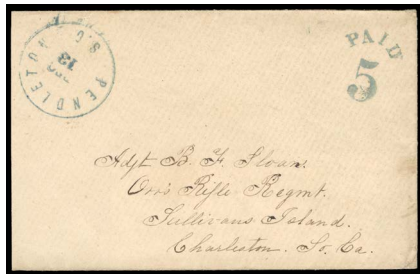 PENDLETON S.C.
13
PAID
5
Adjt B. F. Sloan.
Orrs Rifle Regmt.
Sullivans Island.
Charleston. So. Ca.